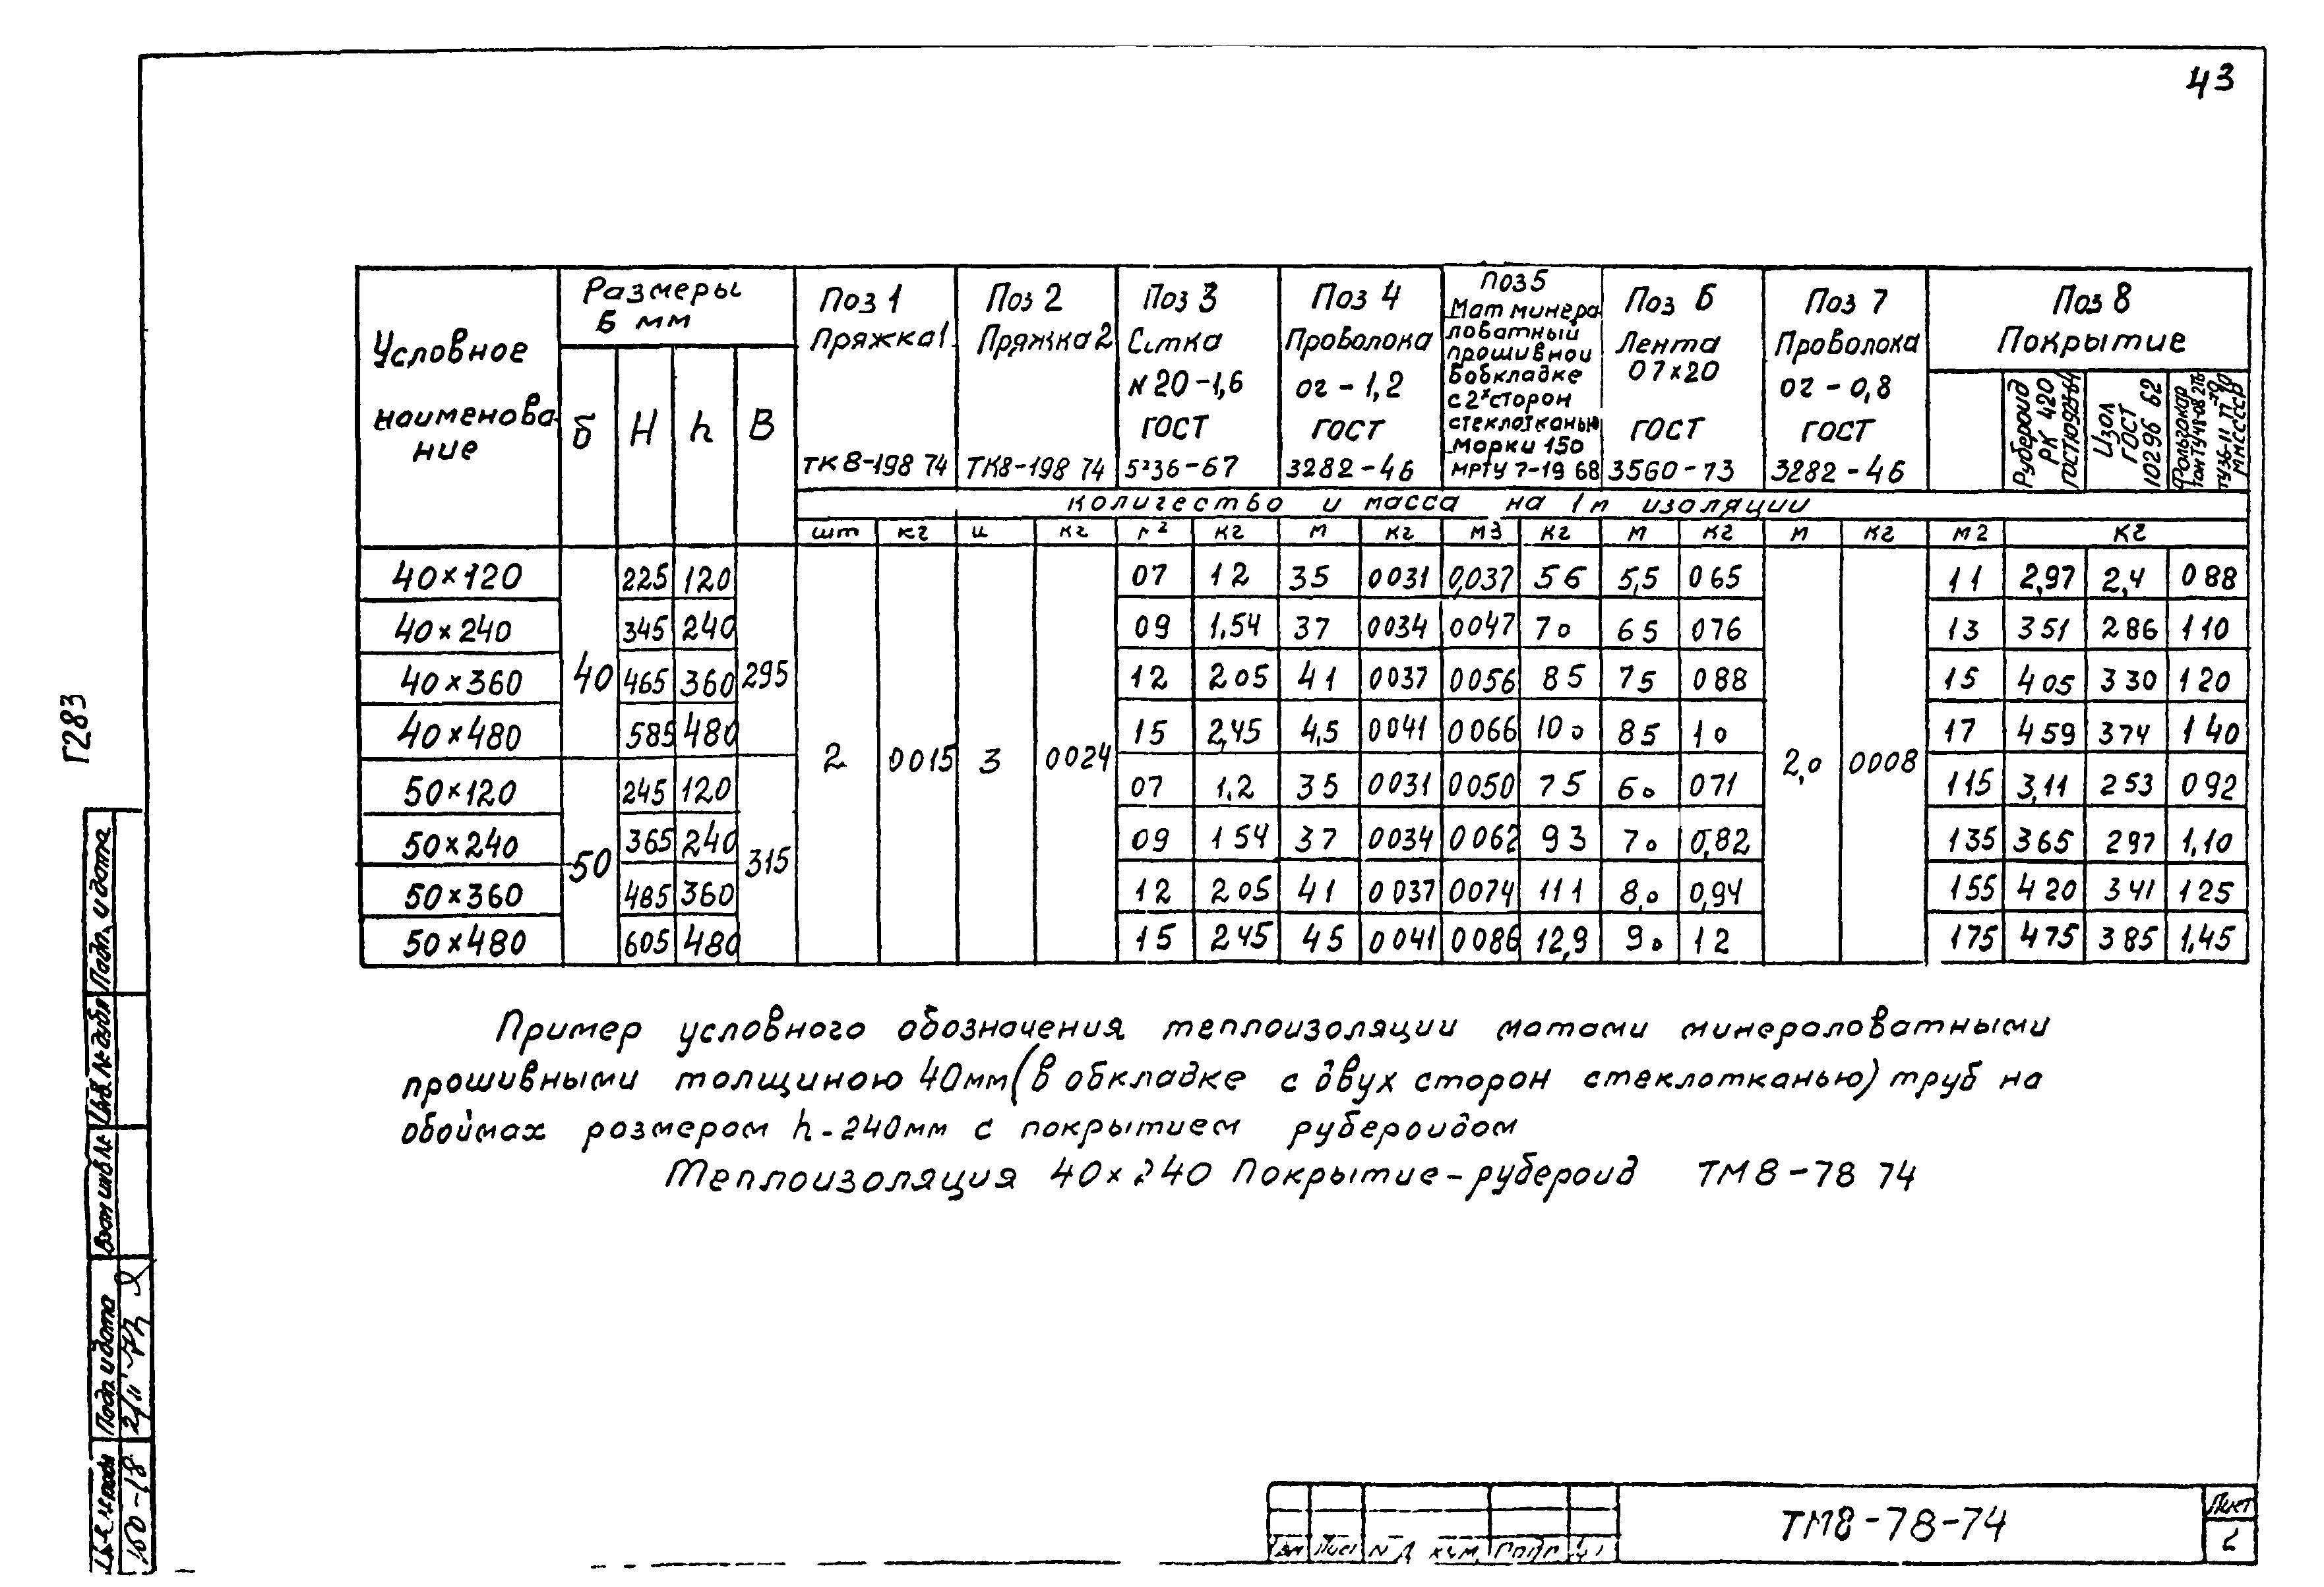 43
Условное наименование
Размеры в мм
б H h B
Поз 1 Пряжка 1 ТК8-198 74
Поз 2 Пряжка 2 ТК8-198 74
Поз 3 Сетка N 20-1,6 ГОСТ 5336-67
Поз 4 Проволока ог-1,2 ГОСТ 3282-46
Поз 5 Мат минераловатный прошивной в обкладке с 2х сторон стеклотканью марки 150 МРТУ 7-19 68
Поз 6 Лента 07×20 ГОСТ 3560-73
Поз 7 Проволока ог-0,8 ГОСТ 3282-46
Поз 8 Покрытие
Рубероид РК 420
Изол ГОСТ 10296 62
количество и масса на 1м изоляции
шт кг ш кг м² кг м кг м3 кг м кг м кг м2 кг
40×120 225 120 07 12 35 0031 0,037 56 5,5 065 11 2,97 2,4 088
40×240 345 240 09 1,54 37 0034 0047 70 65 076 13 351 286 110
40×360 40 465 360 295 12 205 41 0037 0056 85 75 088 15 405 330 120
40×480 585 480 15 2,45 4,5 0041 0066 100 85 10 17 459 374 140
2 0015 3 0024 2,0 0008
50×120 245 120 07 1,2 35 0031 0050 75 60 071 115 3,11 253 092
50×240 50 365 240 315 09 154 37 0034 0062 93 70 0,82 135 365 297 1,10
50×360 485 360 12 205 41 0037 0074 111 8,0 0,94 155 420 341 125
50×480 605 480 15 245 45 0041 0086 12,9 90 12 175 475 385 1,45
Пример условного обозначения теплоизоляции матами минераловатными
прошивными толщиною 40мм (в обкладке с двух сторон стеклотканью) труб на
обоймах размером h-240мм с покрытием рубероидом
Теплоизоляция 40×240 Покрытие-рубероид ТМ8-78 74
Г283
Подп. и дата
Инв. № дубл
Взам инв №
Подп и дата
150-18
ТМ8-78-74
Лист
2